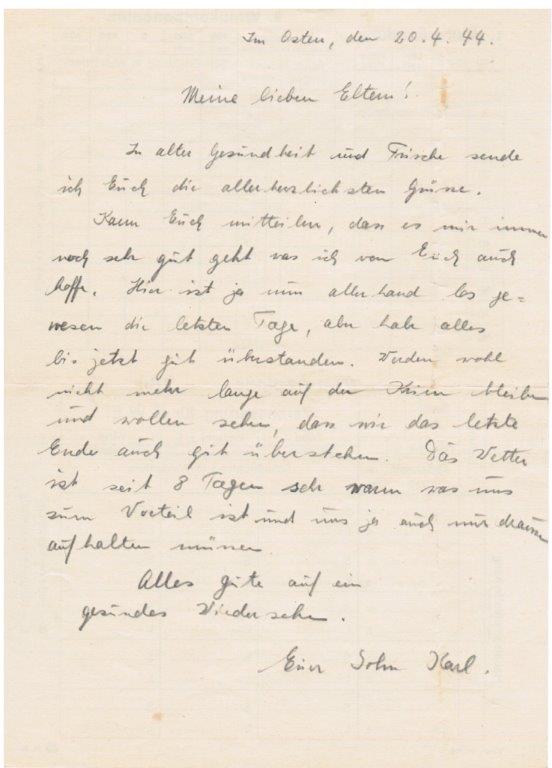 Im Osten, den 20.4.44.
Meine lieben Eltern!
In alter Gesundheit und Frische sende
ich Euch die allerherzlichsten Grüsse.
Kann Euch mitteilen, dass es mir immer
noch sehr gut geht was ich von Euch auch
hoffe. Hier ist ja nun allerhand los ge=
wesen die letzten Tage, aber habe alles
bis jetzt gut überstanden. Werden wohl
nicht mehr lange auf der Krim bleiben
und wollen sehen, dass wir das letzte
Ende auch gut überstehen. Das Wetter
ist seit 8 Tagen sehr warm was uns
zum Vorteil ist und uns ja auch nur draussen
aufhalten müssen.
Alles gute auf ein
gesundes Wiedersehen.
Euer Sohn Karl.